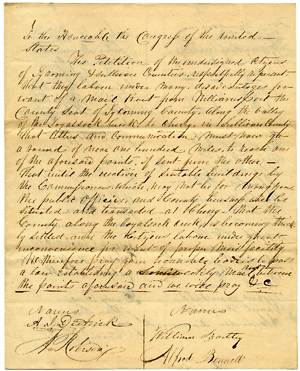 To the Honorable the Congress of the United
States
The Petition of the undersigned Citizens
of Lycoming & Sullivan Counties, respectfully represent
that they labour under many disadvantages for
want of a Mail Rout from Williamsport the
County Seat of Lycoming County along the valley
of the Loyalsock Creek to Cherry in Sullivan County
that letters and Communications must now go
a round of near one hundred miles to reach one
of the aforesaid points, if sent from the other
That until the erection of suitable buildings by
the Commissioners which may not be for years
the public offices and County business will be
situated and transacted at Cherry. That the
County along the Loyalsock Creek is becoming thickly
settled and the citizens labour under great
inconvenience for want of proper mail facility
We therefore pray your honorable body to pass
a law establishing a weekly Mail between
the points aforesaid and we will pray &c
Names
Names
A. J. Dietrick
William
Robinson
Alfred Bennett